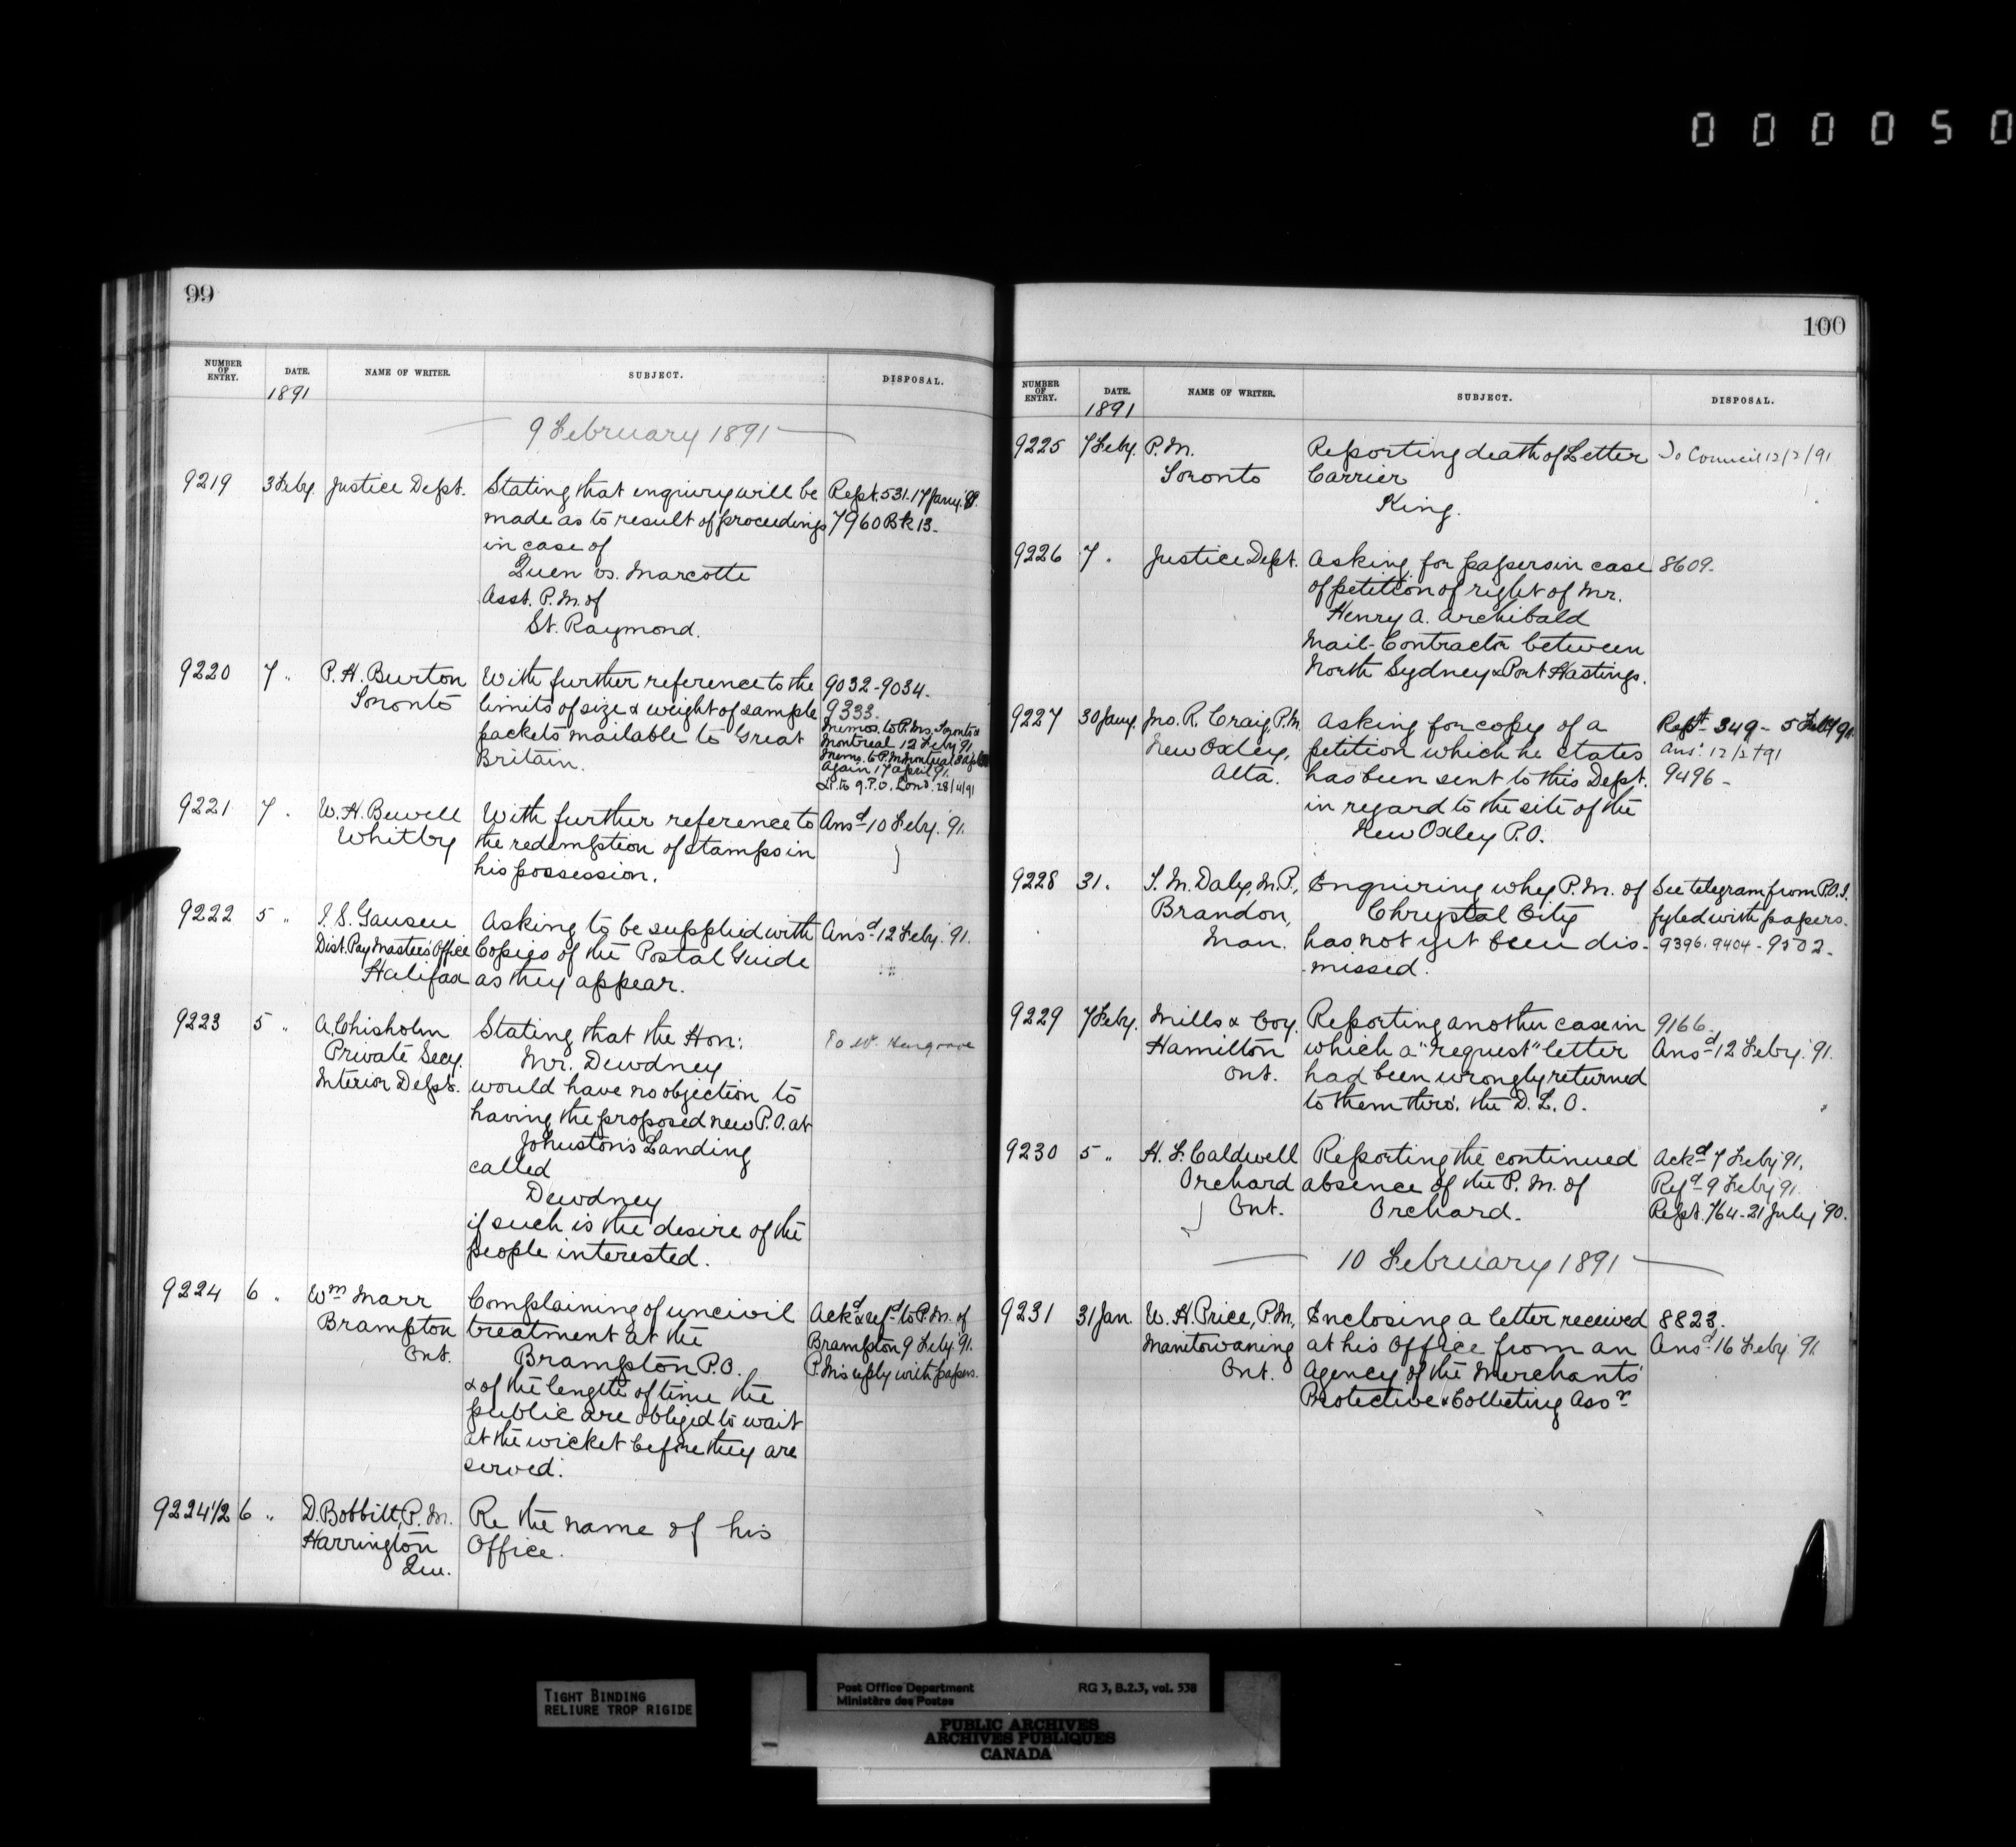 000050
99
NUMBER OF ENTRY. DATE. NAME OF WRITER. SUBJECT. DISPOSAL.
1891
9 February 1891
9219 3 Feby. Justice Dept. Stating that enquiry will be Rept. 531-17 Jany.
made as to result of proceedings 7960 Bk 13.
in case of
Queen vs. Marcotte
Asst. P.M. of
St. Raymond.
9220 7 " P.H. Burton With further reference to the 9032-9034.
Toronto limits of size & weight of sample 9333.
packets mailable to Great Memos. to P.Ms. Toronto &
Britain. Montreal 12 Feby 91
Memo. to P.M. Montreal
again 17 april 91.
Lr. to G.P.O. Lond. 28/4/91
9221 7 " W.H. Bewell With further reference to Ansd. 10 Feby. '91.
Whitby the redemption of stamps in
his possession.
9222 5 " Asking to be supplied with Ansd. 12 Feby. '91.
Dist. Pay Master's Office Copies of the Postal Guide
Halifax as they appear.
9223 5 " A. Chisholm Stating that the Hon: To W.
Private Secy. Mr. Dewdney
Interior Dept. would have no objection to
having the proposed new P.O. at
Johnston's Landing
called
Dewdney
if such is the desire of the
people interested.
9224 6 " Wm Marr Complaining of uncivil Ackd & refd to P.M. of
Brampton treatment at the Brampton 9 Feby. '91.
Ont. Brampton P.O. P.M's reply with papers.
& of the length of time the
public are obliged to wait
at the wicket before they are
served.
9224 1/2 6 " D. Bobbitt, P.M. Re the name of his
Harrington Office.
Que.
100
NUMBER OF ENTRY. DATE. NAME OF WRITER. SUBJECT. DISPOSAL.
1891
9225 7 Feby. P.M. Reporting death of Letter To Council 12/2/91
Toronto Carrier
King.
9226 7 " Justice Dept. Asking for papers in case 8609.
of petition of right of Mr.
Henry A. Archibald
Mail-Contractor between
North Sydney & Port Hastings.
9227 30 Jany. Jno. R. Craig, P.M. Asking for copy of a Rept 349 - 5 Feby 91
New Oxley, petition which he states Ans. 12/2/91
Alta. has been sent to this Dept. 9496 -
in regard to the site of the
New Oxley P.O.
9228 31 . T.M. Daly, M.P., Enquiring why P.M. of See telegram from P.O.I.
Brandon, Chrystal City fyled with papers.
Man. has not yet been dis- 9396. 9404 - 9502.
missed.
9229 7 Feby. Mills & Coy. Reporting another case in 9166.
Hamilton which a "request" letter Ansd 12 Feby. '91.
Ont. had been wrongly returned
to them thro'. the D.L.O.
9230 5 " H.F. Caldwell Reporting the continued Ackd 7 Feby '91.
Orchard absence of the P.M. of Refd 9 Feby '91.
Ont. Orchard. Rept. 764-21 July '90.
10 February 1891
9231 31 Jan. W.H. Price, P.M. Enclosing a letter received 8823.
Manitowaning at his Office from an Ansd 16 Feby '91
Ont. Agency of the Merchants'
Protective & Collecting Assn
TIGHT BINDING
RELIURE TROP RIGIDE
Post Office Department RG 3, B.2.3, vol. 538
Ministère des Postes
PUBLIC ARCHIVES
ARCHIVES PUBLIQUES
CANADA